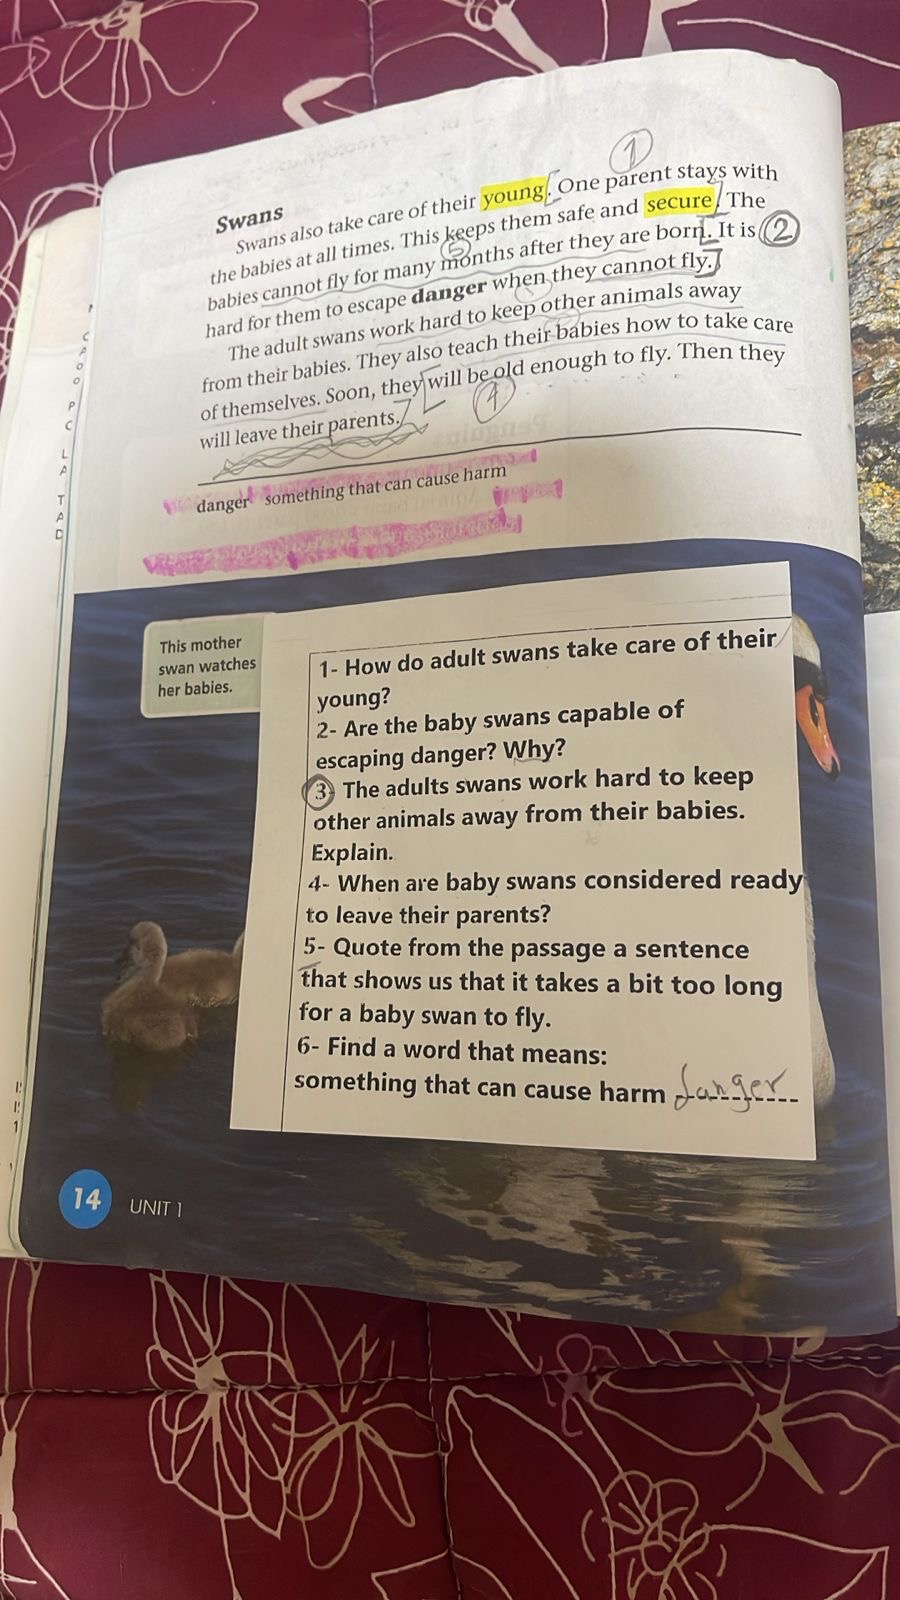 Swans
Swans also take care of their young. One parent stays with
the babies at all times. This keeps them safe and secure. The
babies cannot fly for many months after they are born. It is
hard for them to escape danger when they cannot fly.
The adult swans work hard to keep other animals away
from their babies. They also teach their babies how to take care
of themselves. Soon, they will be old enough to fly. Then they
will leave their parents.
1
2
5
4
danger something that can cause harm
This mother
swan watches
her babies.
1- How do adult swans take care of their
young?
2- Are the baby swans capable of
escaping danger? Why?
3- The adults swans work hard to keep
other animals away from their babies.
Explain.
4- When are baby swans considered ready
to leave their parents?
5- Quote from the passage a sentence
that shows us that it takes a bit too long
for a baby swan to fly.
6- Find a word that means:
something that can cause harm danger
14 UNIT 1